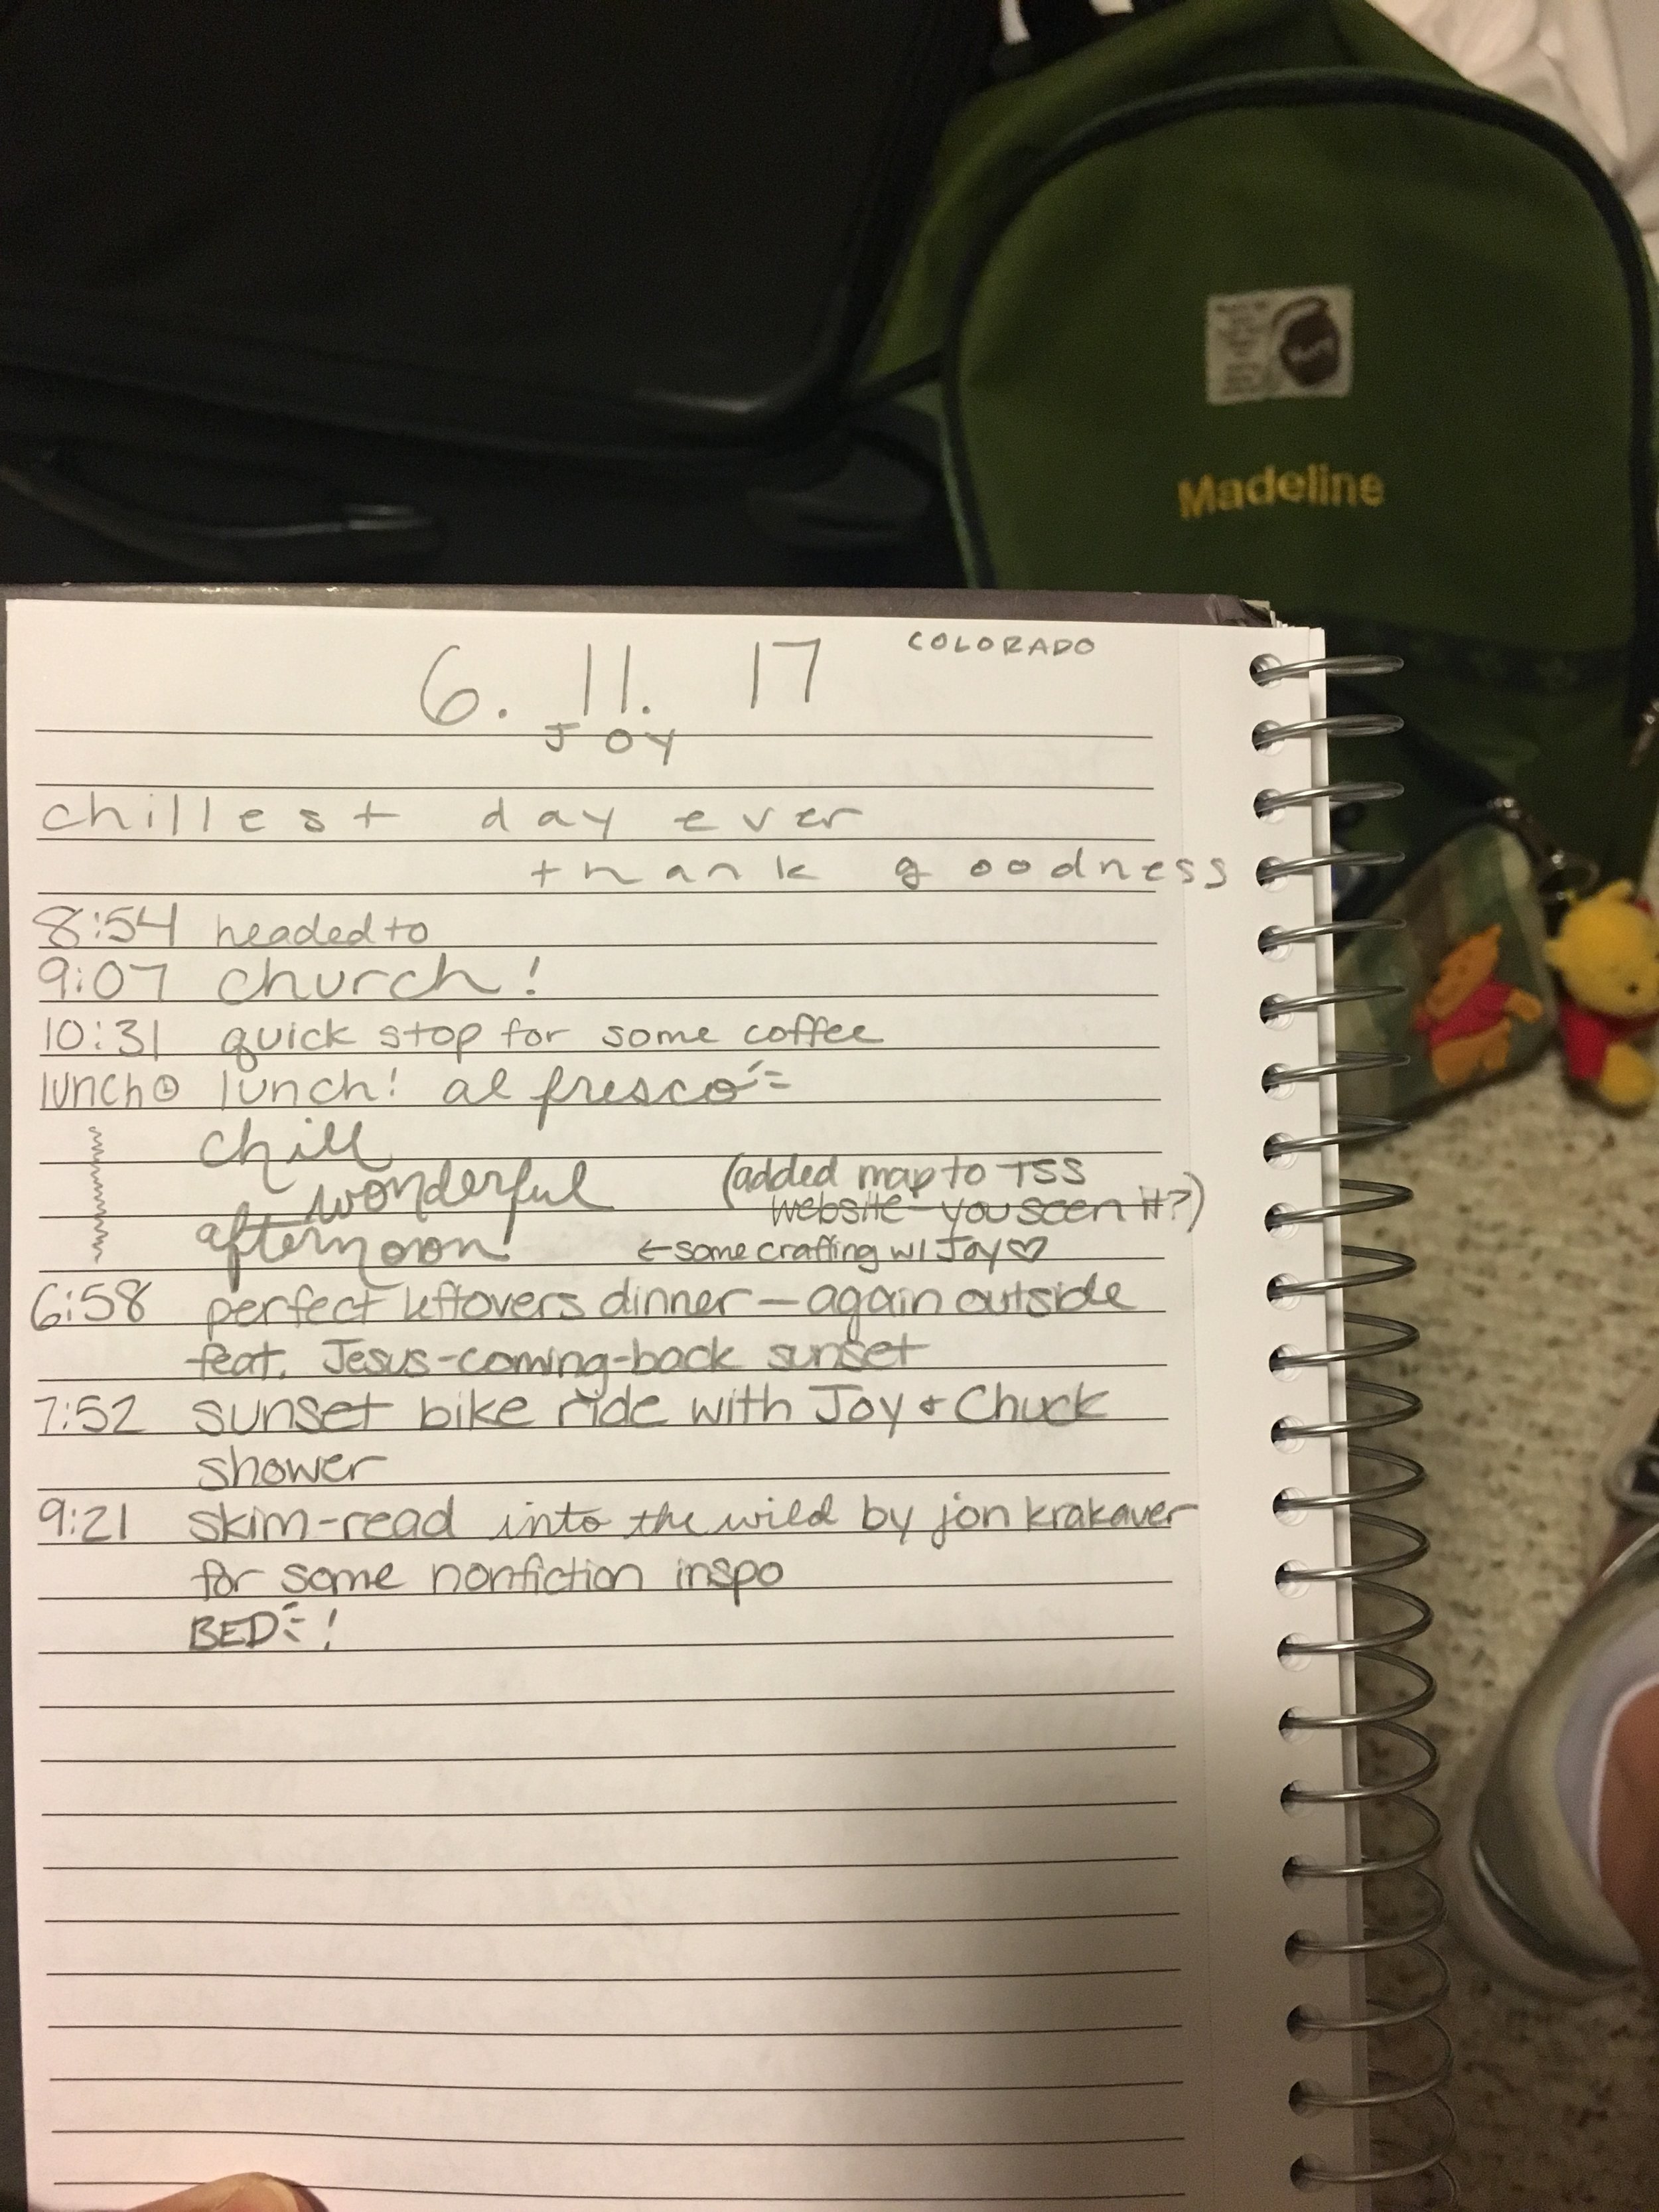 Madeline
6. 11. 17
COLORADO
JOY
chillest day ever
thank goodness
8:54 headed to
9:07 church!
10:31 quick stop for some coffee
lunch lunch! al fresco
chill
wonderful
(added map to TSS
website - you seen it?)
afternoon
← some crafting w/ Joy ♡
6:58 perfect leftovers dinner — again outside
feat. Jesus-coming-back sunset
7:52 sunset bike ride with Joy & Chuck
shower
9:21 skim-read into the wild by jon krakauer
for some nonfiction inspo
BED!